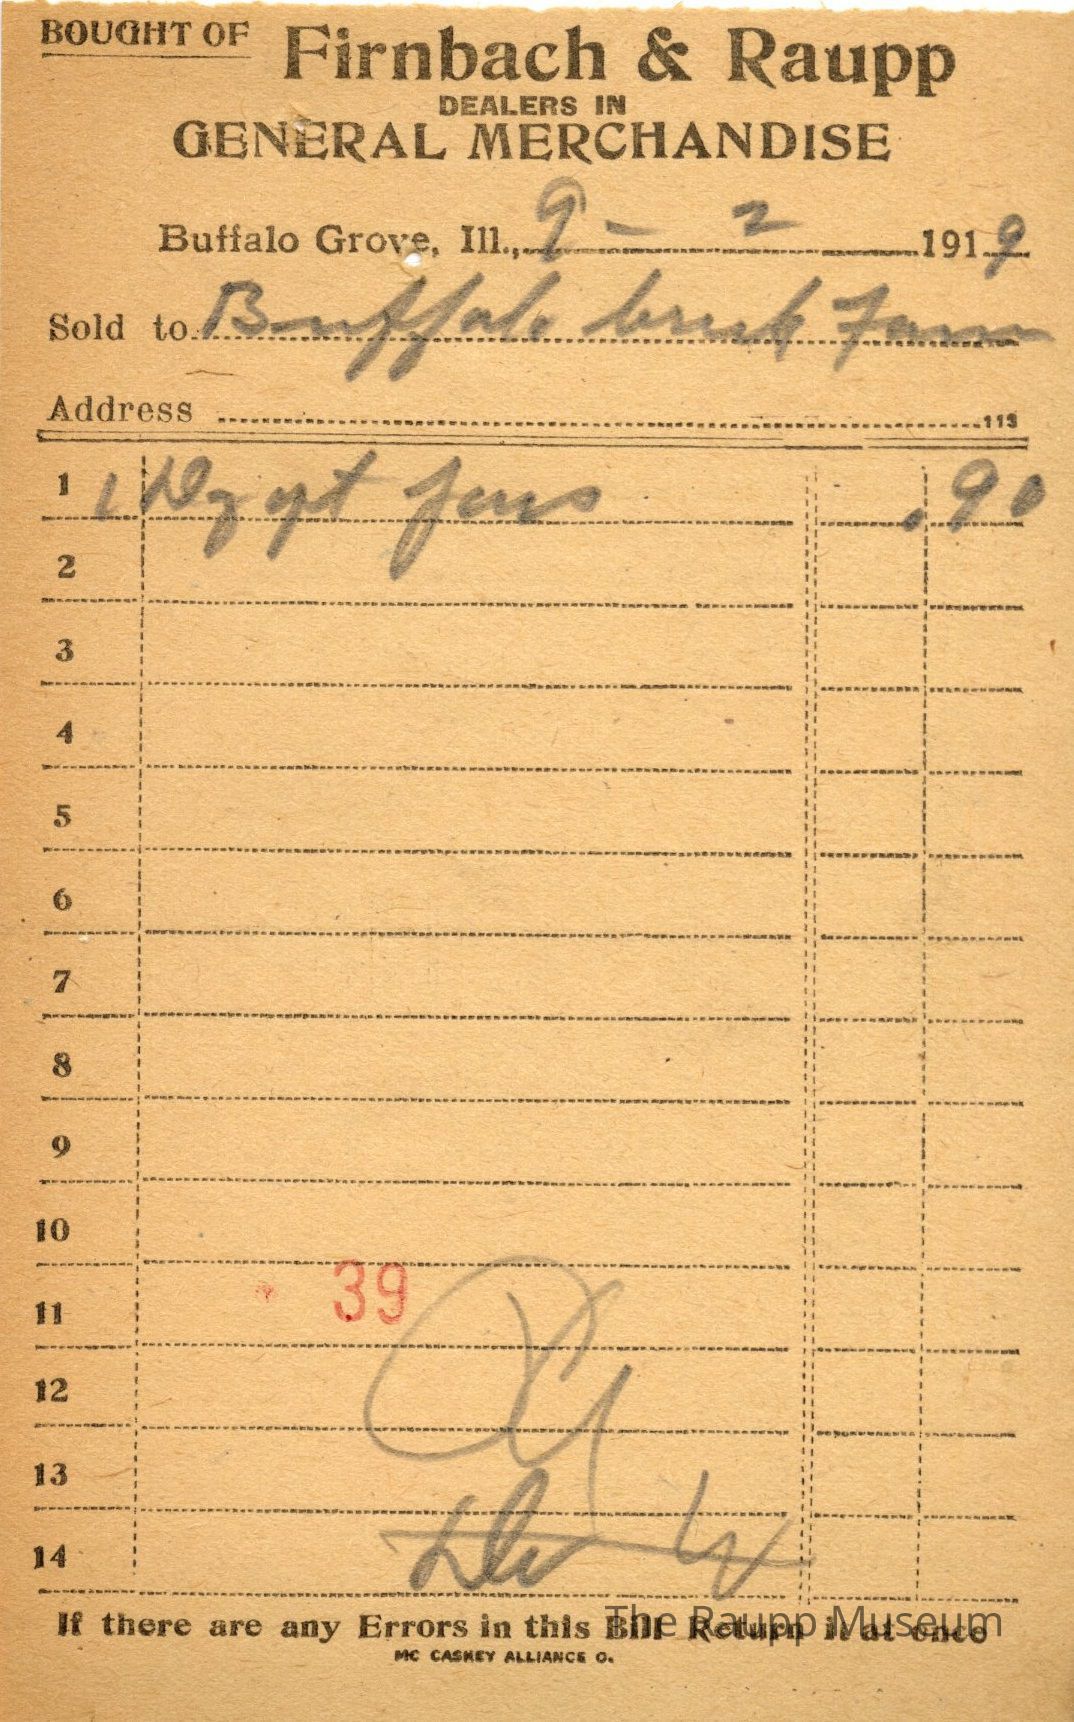 BOUGHT OF Firnbach & Raupp
DEALERS IN
GENERAL MERCHANDISE
Buffalo Grove, Ill., 9 - 2 1919
Sold to Buffalo Creek Farm
Address 113
1 1 Dz qt jars .90
2
3
4
5
6
7
8
9
10
39
11
12
13
14
If there are any Errors in this Bill Return it at once
The Raupp Museum
MC CASKEY ALLIANCE O.